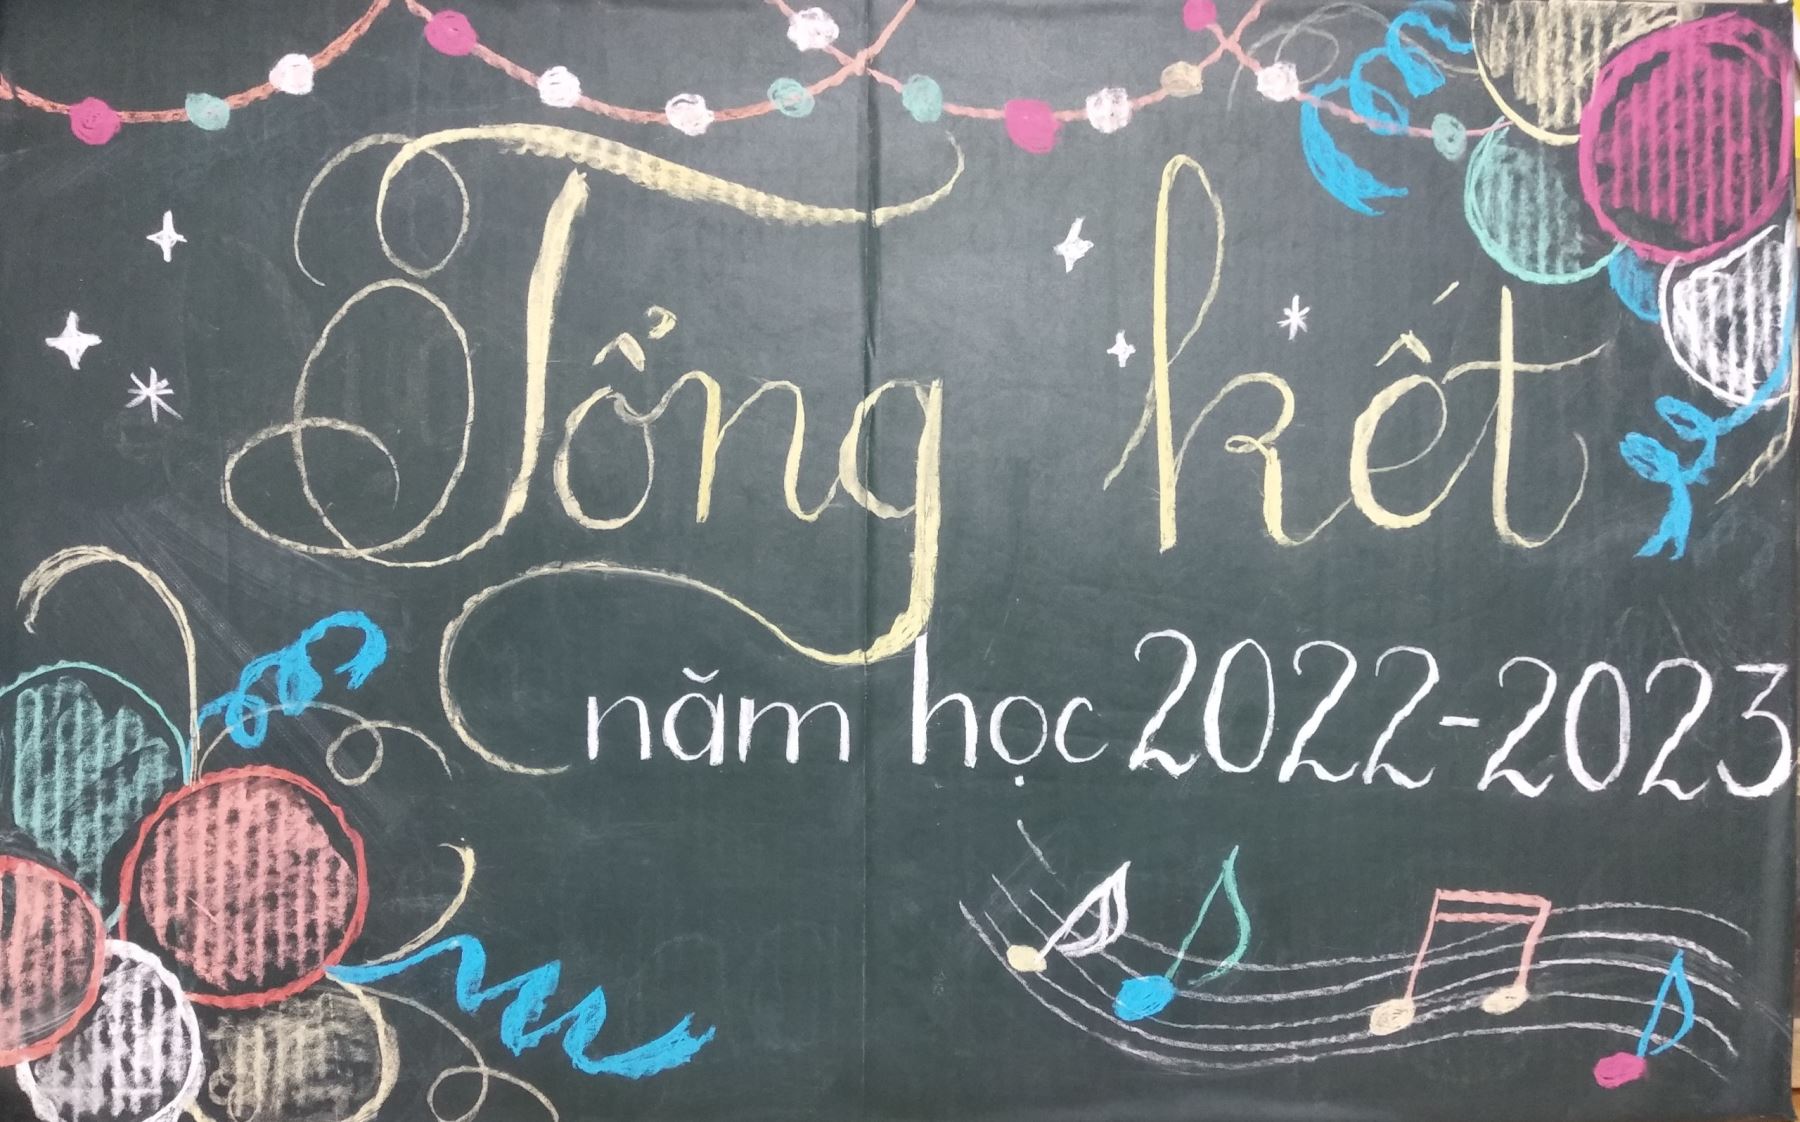 Tổng kết
năm học 2022-2023